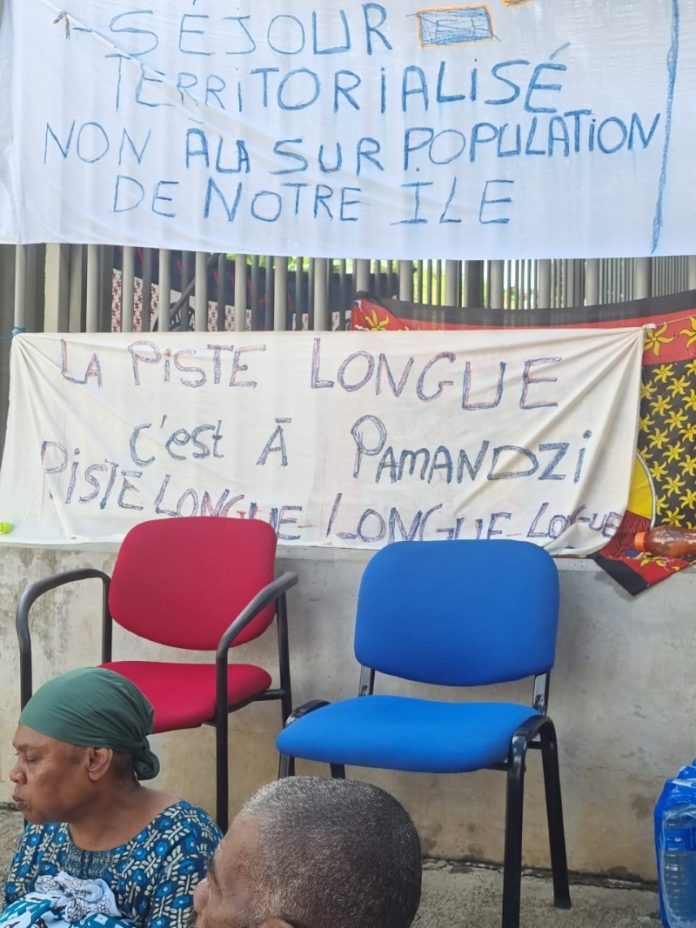 - SÉJOUR
TERRITORIALISÉ
NON À LA SUR POPULATION
DE NOTRE ILE
LA PISTE LONGUE
c'est À PAMANDZI
PISTE LONGUE - LONGUE - LONGUE